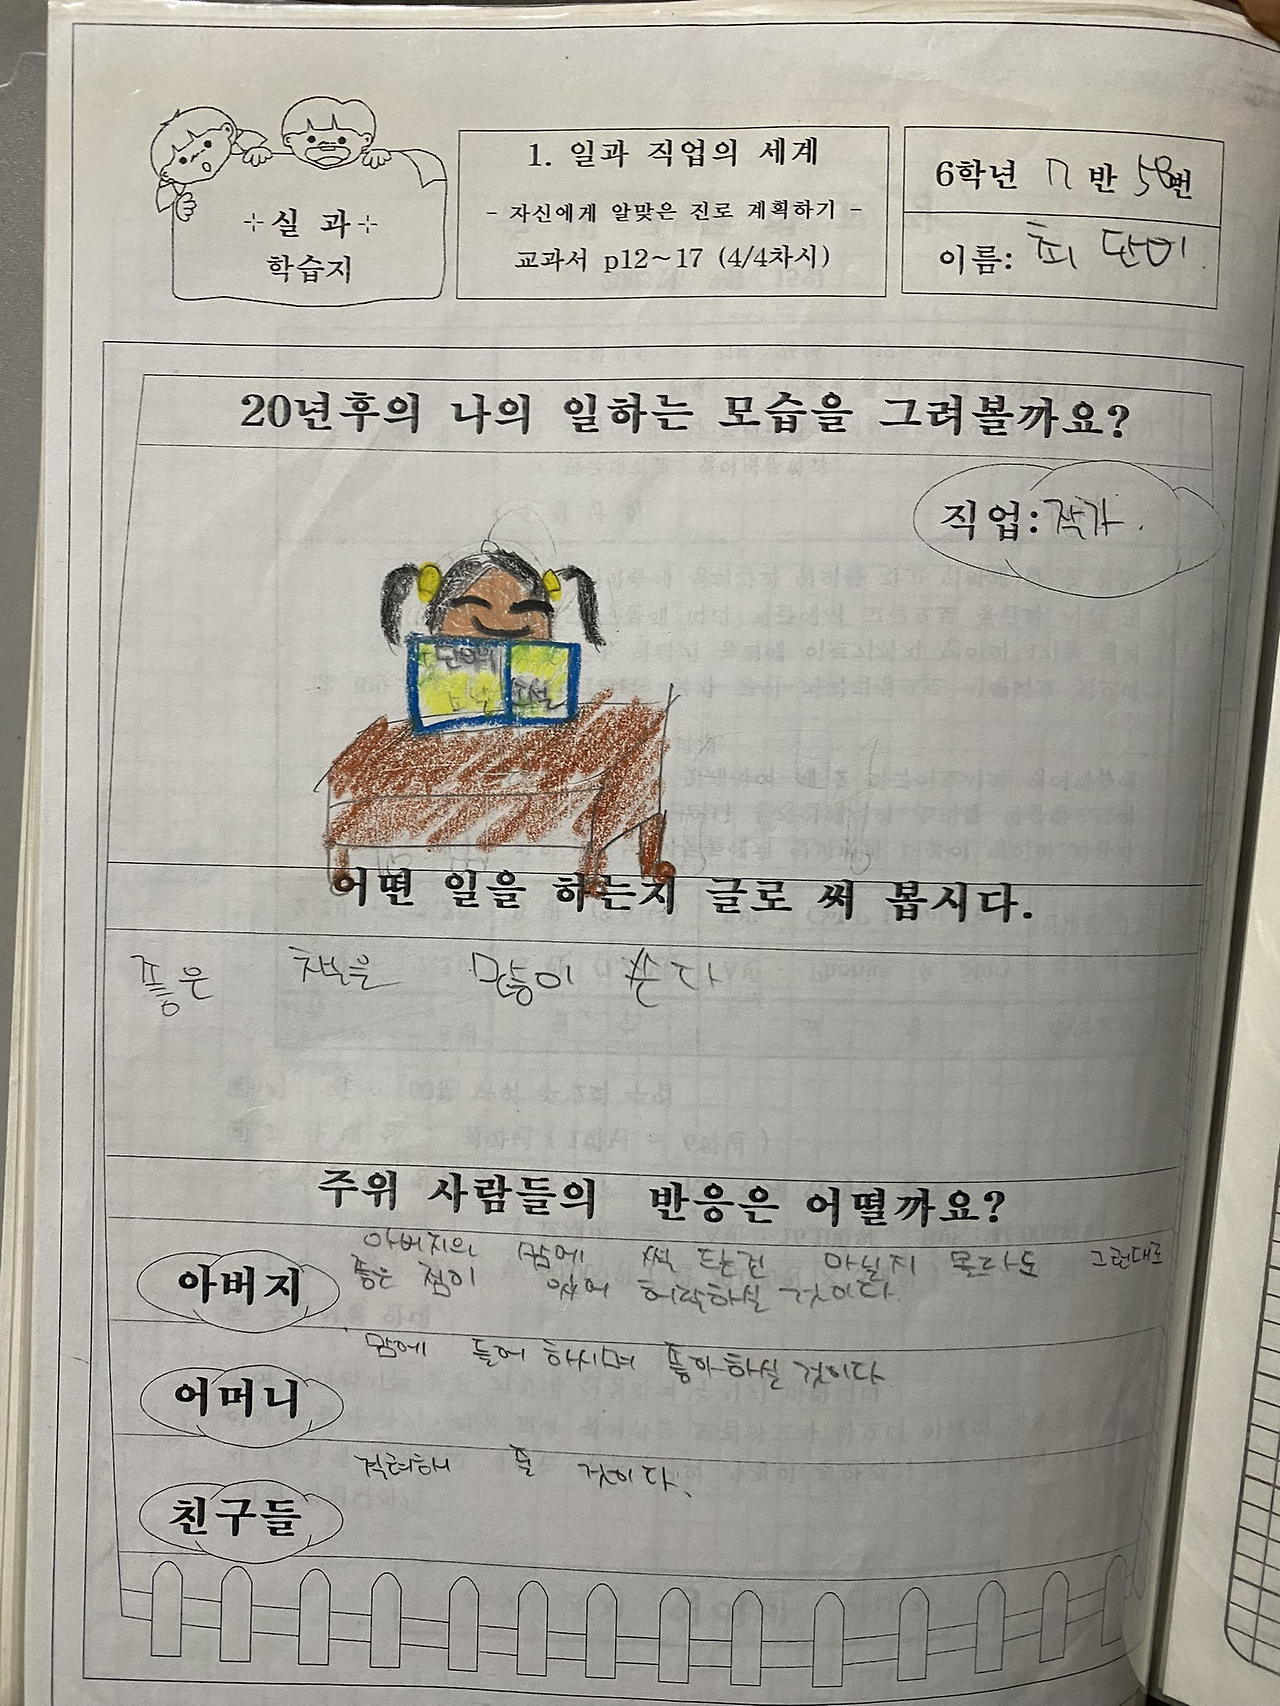 실 과
학습지
1. 일과 직업의 세계
- 자신에게 알맞은 진로 계획하기 -
교과서 p12~17 (4/4차시)
6학년 7 반 58번
이름: 최 단비.
20년후의 나의 일하는 모습을 그려볼까요?
직업: 작가.
단비의
소설
어떤 일을 하는지 글로 써 봅시다.
좋은 책을 많이 쓴다
주위 사람들의 반응은 어떨까요?
아버지의 맘에 썩 드는건 아닐지 몰라도 그런대로
아버지 좋은 점이 있어 허락하실 것이다.
맘에 들어 하시며 좋아하실 것이다
어머니
격려해 줄 것이다.
친구들